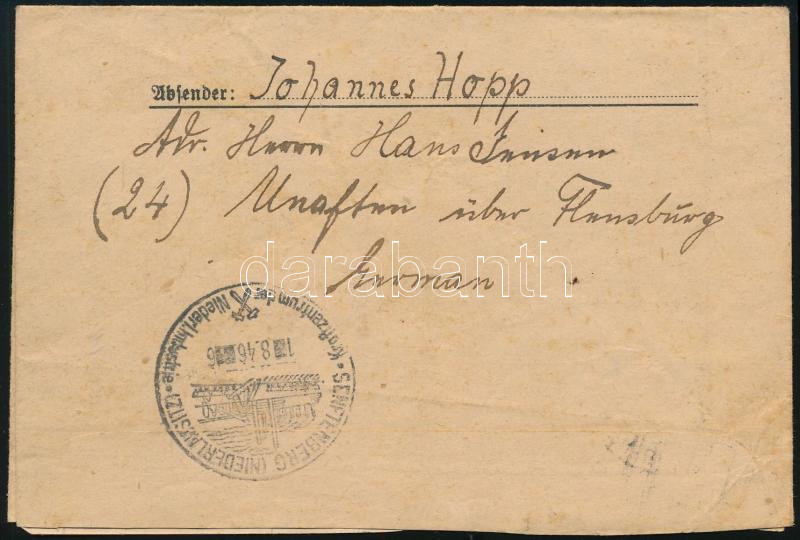 Absender: Johannes Hopp
Adr. Herrn Hans Jensen
(24) Unaften über Flensburg
German
darabanth
SENFTENBERG (NIEDERLAUSITZ)
Kraftzentrum der Niederl. Industrie
1 8.46